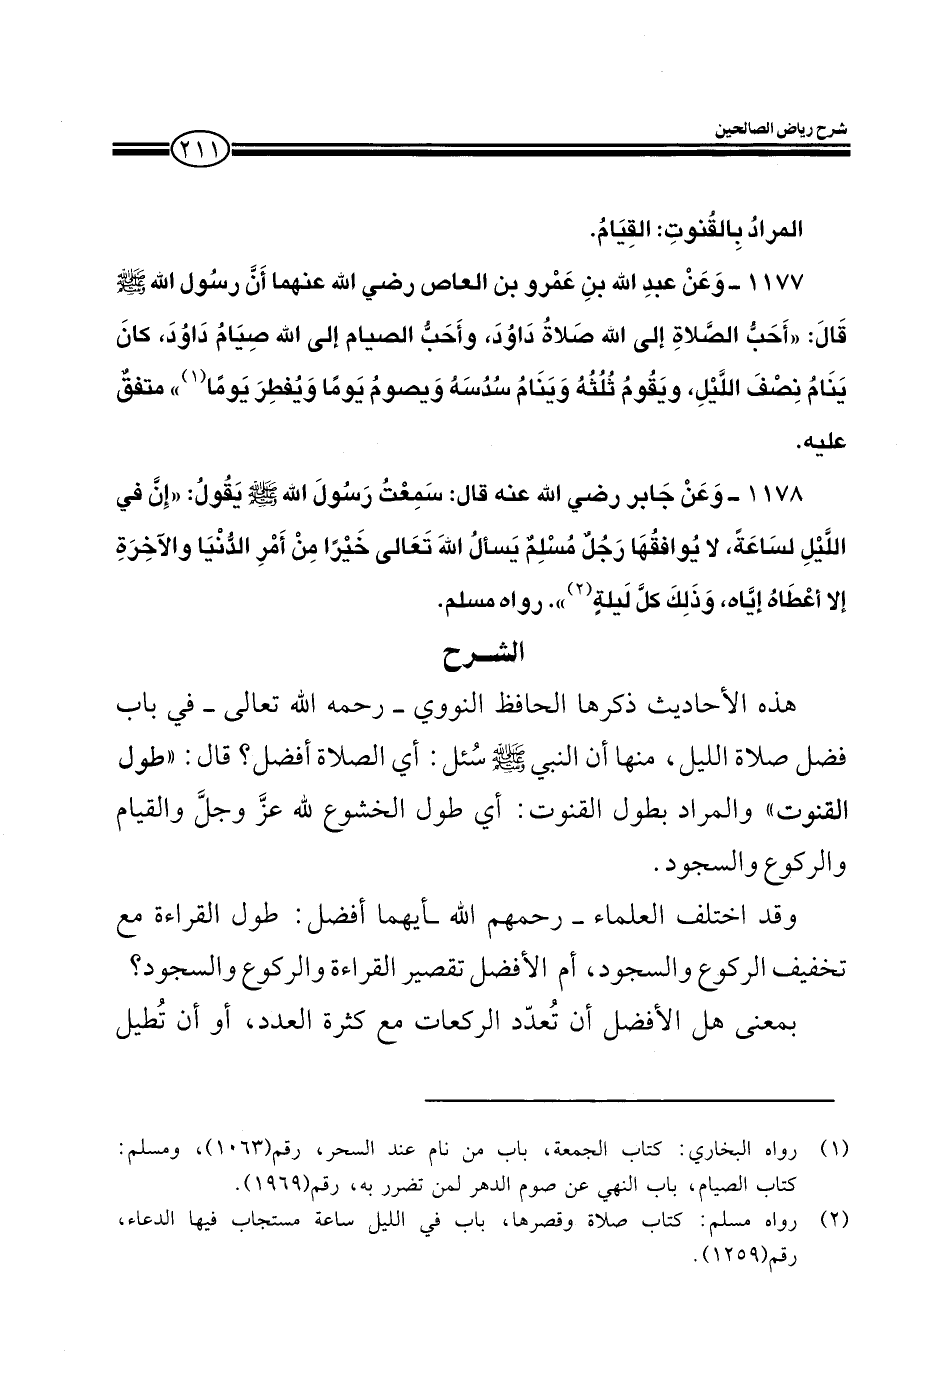 شرح رياض الصالحين
٢١١
المرادُ بِالقُنوتِ: القِيَامُ.
١١٧٧ ـ وَعَنْ عبدِ الله بنِ عَمْرو بن العاص رضي الله عنهما أَنَّ رسُول الله ﷺ
قَالَ: «أَحَبُّ الصَّلاةِ إلى الله صَلاةُ دَاوُدَ، وأحَبُّ الصيام إلى الله صِيَامُ دَاوُدَ، كانَ
يَنَامُ نِصْفَ اللَّيْلِ، ويَقُومُ ثُلُثَهُ وَيَنَامُ سُدُسَهُ وَيصومُ يَومًا وَيُفطِرَ يَومًا(١)» متفقٌ
عليه.
١١٧٨ ـ وَعَنْ جَابر رضي الله عنه قال: سَمِعْتُ رَسُولَ الله ﷺ يَقُولُ: «إنَّ في
اللَّيْلِ لسَاعَةً، لا يُوافقُهَا رَجُلٌ مُسْلِمٌ يَسألُ اللهَ تَعَالى خَيْرًا مِنْ أمْرِ الدُّنْيَا والآخِرَةِ
إلا أعْطَاهُ إيَّاه، وَذَلِكَ كلَّ لَيلةٍ(٢)». رواه مسلم.
الشـرح
هذه الأحاديث ذكرها الحافظ النووي ـ رحمه الله تعالى ـ في باب
فضل صلاة الليل، منها أن النبي ﷺ سُئل: أي الصلاة أفضل؟ قال: «طول
القنوت» والمراد بطول القنوت: أي طول الخشوع لله عزَّ وجلَّ والقيام
والركوع والسجود.
وقد اختلف العلماء ـ رحمهم الله ـ أيهما أفضل: طول القراءة مع
تخفيف الركوع والسجود، أم الأفضل تقصير القراءة والركوع والسجود؟
بمعنى هل الأفضل أن تُعدّد الركعات مع كثرة العدد، أو أن تُطيل
(١) رواه البخاري: كتاب الجمعة، باب من نام عند السحر، رقم(١٠٦٣)، ومسلم:
كتاب الصيام، باب النهي عن صوم الدهر لمن تضرر به، رقم(١٩٦٩).
(٢) رواه مسلم: كتاب صلاة وقصرها، باب في الليل ساعة مستجاب فيها الدعاء،
رقم(١٢٥٩).